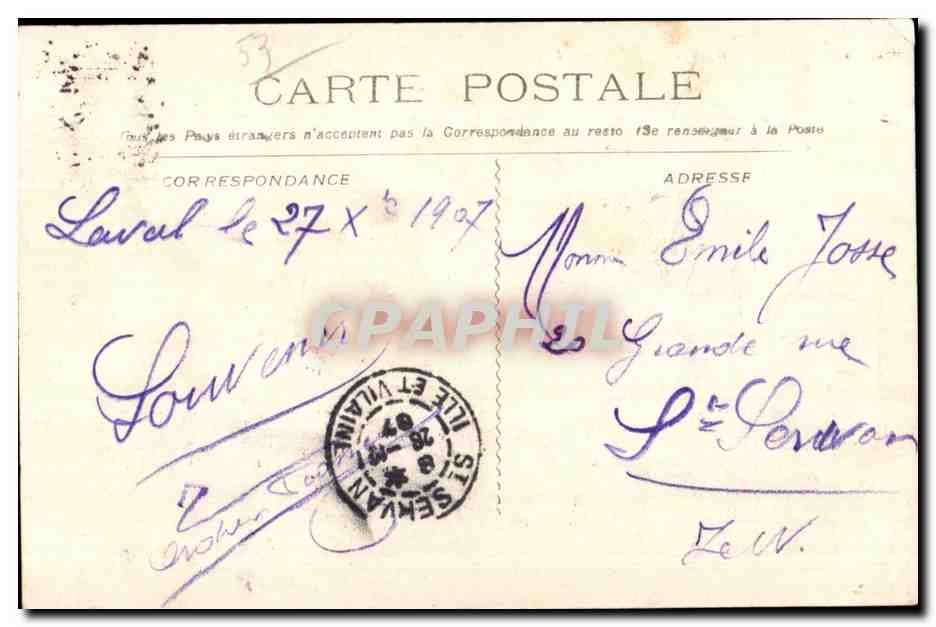 53
CARTE POSTALE
Tous les Pays étrangers n'acceptent pas la Correspondance au resto (Se renseigner à la Poste
CORRESPONDANCE
ADRESSE
Laval le 27 Xb 1907
Souvenir
Emile Josse
Grande rue
St Servan
I et V.
CPAPHIL
ST SERVAN ILLE ET VILAINE
8
28 - 12
07